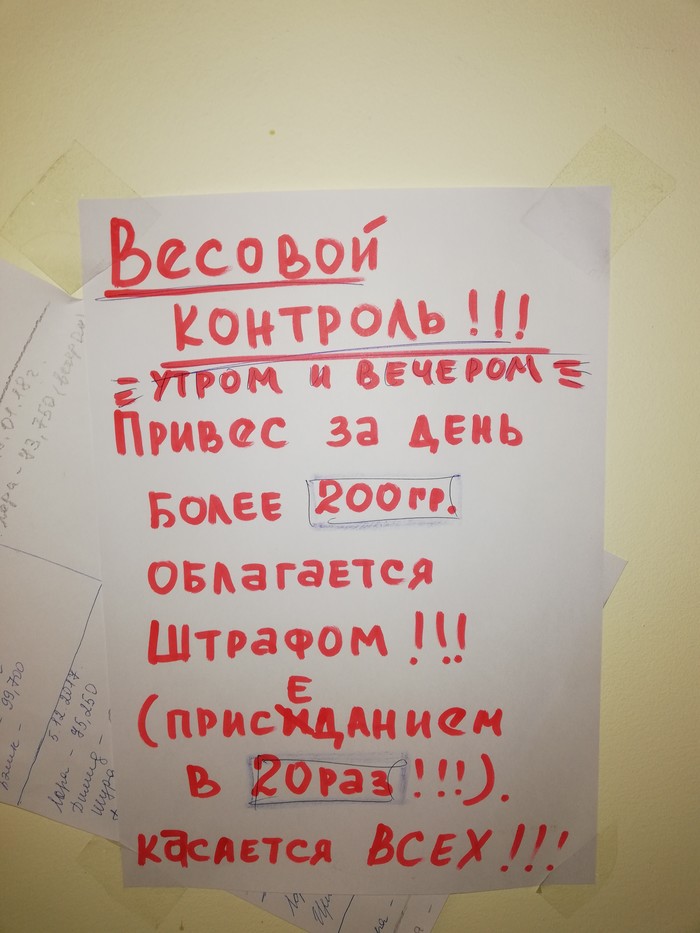 Весовой
контроль!!!
= утром и вечером =
Привес за день
более 200гр.
облагается
штрафом!!!
(присЕданием
в 20раз!!!).
касается ВСЕХ!!!
01.18г.
Лара - 73,750 (вечером)
99,700
5.12.2017
Лара - 75,250